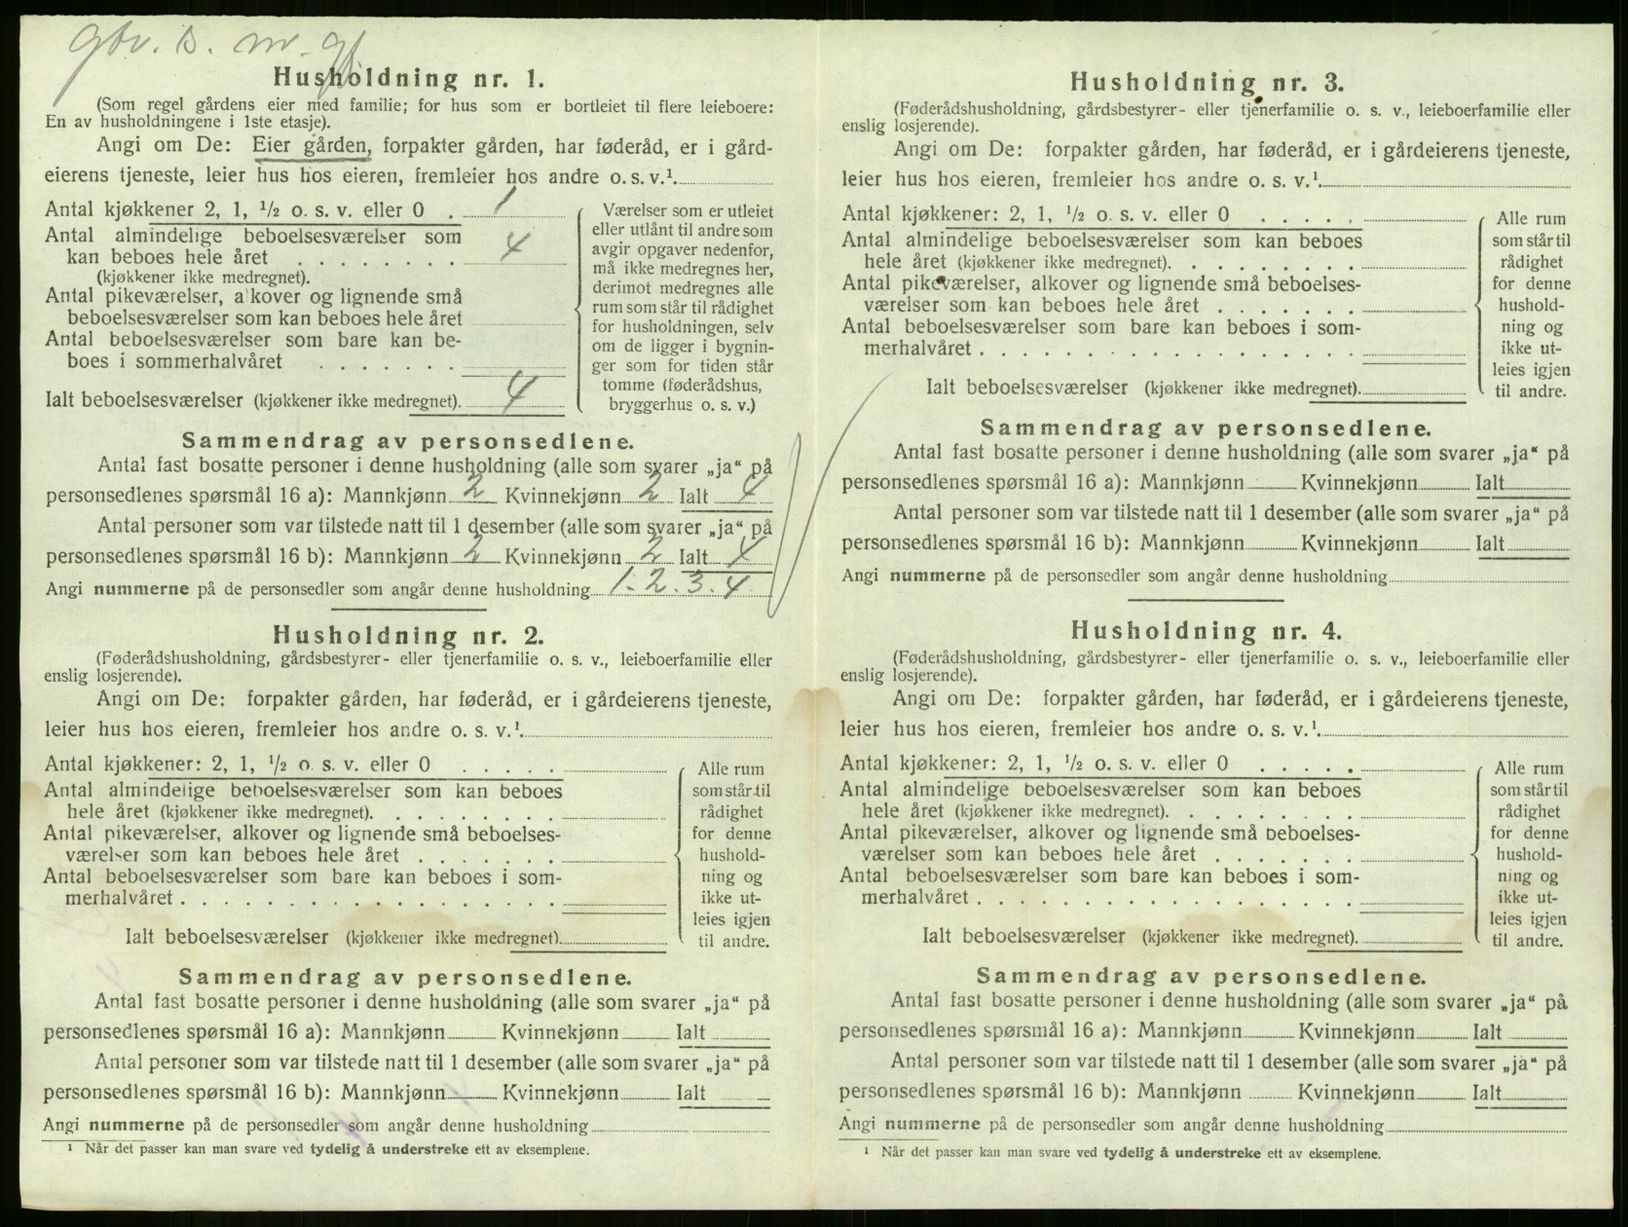 gbr. B. m. gf
Husholdning nr. 1.
(Som regel gårdens eier med familie; for hus som er bortleiet til flere leieboere:
En av husholdningene i 1ste etasje).
Angi om De: Eier gården, forpakter gården, har føderåd, er i gård-
eierens tjeneste, leier hus hos eieren, fremleier hos andre o. s. v.¹.
Antal kjøkkener 2, 1, ½ o. s. v. eller 0 . 1
Antal almindelige beboelsesværelser som
kan beboes hele året . . . . . . . . 4
(kjøkkener ikke medregnet).
Antal pikeværelser, alkover og lignende små
beboelsesværelser som kan beboes hele året
Antal beboelsesværelser som bare kan be-
boes i sommerhalvåret . . . . . . .
Ialt beboelsesværelser (kjøkkener ikke medregnet). 4
Værelser som er utleiet
eller utlånt til andre som
avgir opgaver nedenfor,
må ikke medregnes her,
derimot medregnes alle
rum som står til rådighet
for husholdningen, selv
om de ligger i bygnin-
ger som for tiden står
tomme (føderådshus,
bryggerhus o. s. v.)
Sammendrag av personsedlene.
Antal fast bosatte personer i denne husholdning (alle som svarer „ja“ på
personsedlenes spørsmål 16 a): Mannkjønn 2 Kvinnekjønn 2 Ialt 4
Antal personer som var tilstede natt til 1 desember (alle som svarer „ja“ på
personsedlenes spørsmål 16 b): Mannkjønn 2 Kvinnekjønn 2 Ialt 4
Angi nummerne på de personsedler som angår denne husholdning 1. 2. 3. 4
Husholdning nr. 2.
(Føderådshusholdning, gårdsbestyrer- eller tjenerfamilie o. s. v., leieboerfamilie eller
enslig losjerende).
Angi om De: forpakter gården, har føderåd, er i gårdeierens tjeneste,
leier hus hos eieren, fremleier hos andre o. s. v.¹.
Antal kjøkkener: 2, 1, ½ o. s. v. eller 0 . . . . .
Antal almindelige beboelsesværelser som kan beboes
hele året (kjøkkener ikke medregnet). . . . . . . .
Antal pikeværelser, alkover og lignende små beboelses-
værelser som kan beboes hele året . . . . . . .
Antal beboelsesværelser som bare kan beboes i som-
merhalvåret . . . . . . . . . . . . . . . . .
Ialt beboelsesværelser (kjøkkener ikke medregnet).
Alle rum
som står til
rådighet
for denne
hushold-
ning og
ikke ut-
leies igjen
til andre.
Sammendrag av personsedlene.
Antal fast bosatte personer i denne husholdning (alle som svarer „ja“ på
personsedlenes spørsmål 16 a): Mannkjønn Kvinnekjønn Ialt
Antal personer som var tilstede natt til 1 desember (alle som svarer „ja“ på
personsedlenes spørsmål 16 b): Mannkjønn Kvinnekjønn Ialt
Angi nummerne på de personsedler som angår denne husholdning
¹ Når det passer kan man svare ved tydelig å understreke ett av eksemplene.
Husholdning nr. 3.
(Føderådshusholdning, gårdsbestyrer- eller tjenerfamilie o. s. v., leieboerfamilie eller
enslig losjerende).
Angi om De: forpakter gården, har føderåd, er i gårdeierens tjeneste,
leier hus hos eieren, fremleier hos andre o. s. v.¹.
Antal kjøkkener: 2, 1, ½ o. s. v. eller 0 . . . . .
Antal almindelige beboelsesværelser som kan beboes
hele året (kjøkkener ikke medregnet). . . . . . . .
Antal pikeværelser, alkover og lignende små beboelses-
værelser som kan beboes hele året . . . . . . .
Antal beboelsesværelser som bare kan beboes i som-
merhalvåret . . . . . . . . . . . . . . . . .
Ialt beboelsesværelser (kjøkkener ikke medregnet).
Alle rum
som står til
rådighet
for denne
hushold-
ning og
ikke ut-
leies igjen
til andre.
Sammendrag av personsedlene.
Antal fast bosatte personer i denne husholdning (alle som svarer „ja“ på
personsedlenes spørsmål 16 a): Mannkjønn Kvinnekjønn Ialt
Antal personer som var tilstede natt til 1 desember (alle som svarer „ja“ på
personsedlenes spørsmål 16 b): Mannkjønn Kvinnekjønn Ialt
Angi nummerne på de personsedler som angår denne husholdning
Husholdning nr. 4.
(Føderådshusholdning, gårdsbestyrer- eller tjenerfamilie o. s. v., leieboerfamilie eller
enslig losjerende).
Angi om De: forpakter gården, har føderåd, er i gårdeierens tjeneste,
leier hus hos eieren, fremleier hos andre o. s. v.¹.
Antal kjøkkener: 2, 1, ½ o. s. v. eller 0 . . . . .
Antal almindelige beboelsesværelser som kan beboes
hele året (kjøkkener ikke medregnet). . . . . . . .
Antal pikeværelser, alkover og lignende små beboelses-
værelser som kan beboes hele året . . . . . . .
Antal beboelsesværelser som bare kan beboes i som-
merhalvåret . . . . . . . . . . . . . . . . .
Ialt beboelsesværelser (kjøkkener ikke medregnet).
Alle rum
som står til
rådighet
for denne
hushold-
ning og
ikke ut-
leies igjen
til andre.
Sammendrag av personsedlene.
Antal fast bosatte personer i denne husholdning (alle som svarer „ja“ på
personsedlenes spørsmål 16 a): Mannkjønn Kvinnekjønn Ialt
Antal personer som var tilstede natt til 1 desember (alle som svarer „ja“ på
personsedlenes spørsmål 16 b): Mannkjønn Kvinnekjønn Ialt
Angi nummerne på de personsedler som angår denne husholdning
¹ Når det passer kan man svare ved tydelig å understreke ett av eksemplene.